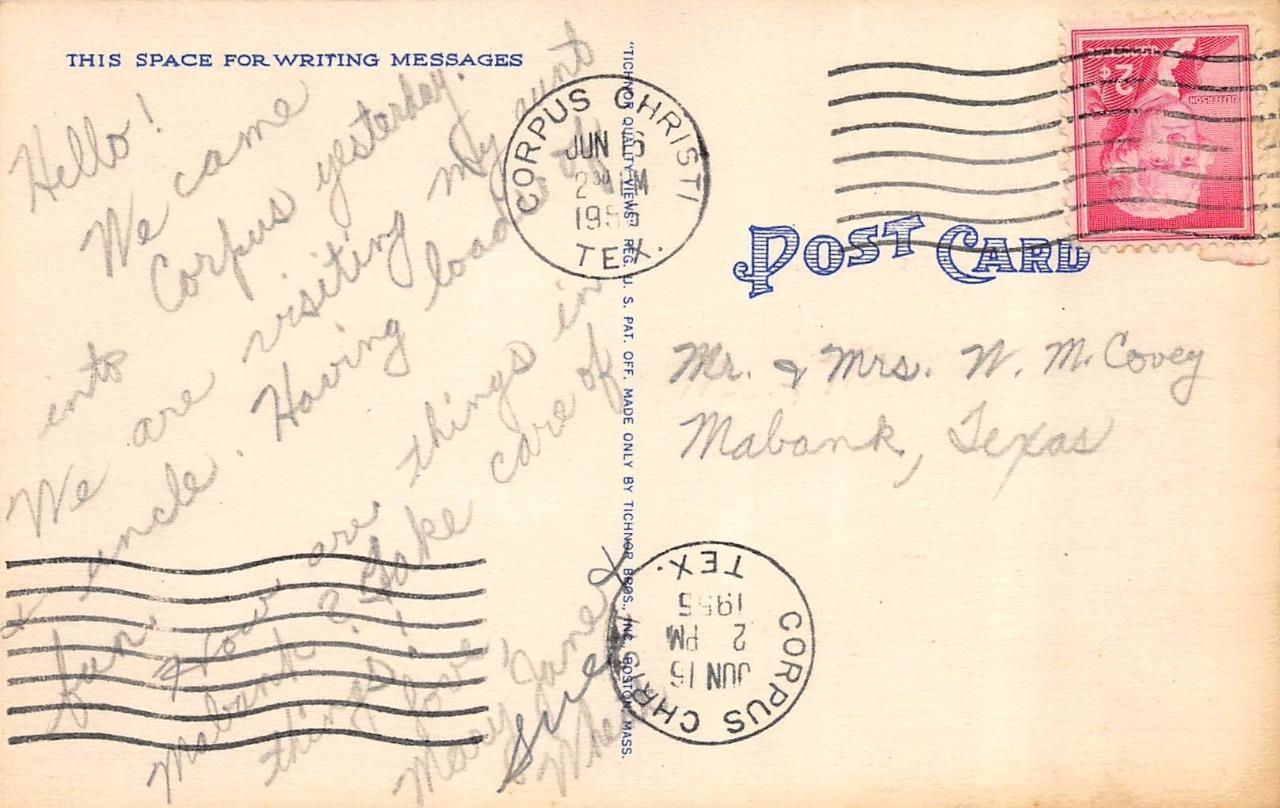 THIS SPACE FOR WRITING MESSAGES
Hello!
We came
into Corpus yesterday.
We are visiting my aunt
& uncle. Having loads of
fun.
How are things in
Mabank? Take care of
things!
Love
Mary Jane
Sue
"TICHNOR QUALITY VIEWS," REG. U. S. PAT. OFF. MADE ONLY BY TICHNOR BROS., INC., BOSTON, MASS.
CORPUS CHRISTI
JUN
TEX.
2¢
JEFFERSON
POST CARD
Mr. & Mrs. W. McCovey
Mabank, Texas
CORPUS CHRISTI
JUN 16
2 PM
1955
TEX.